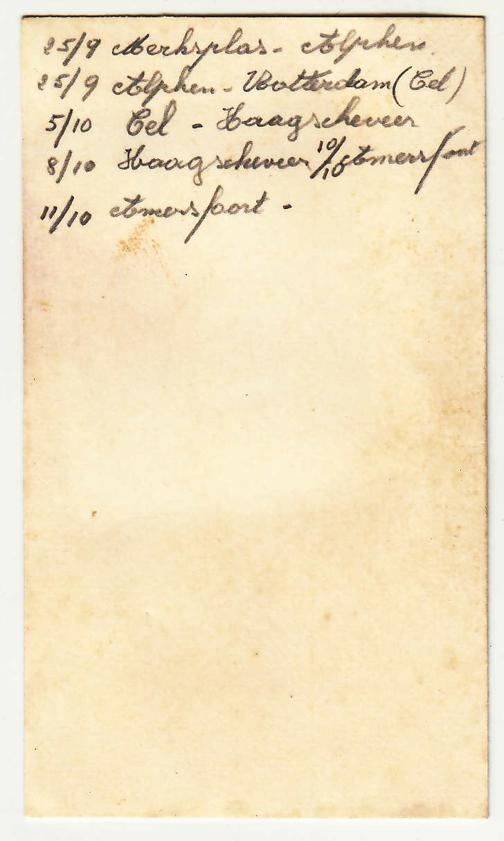 25/9 Merksplas - Alphen.
25/9 Alphen - Rotterdam (Cel)
5/10 Cel - Haagscheveer
8/10 Haagscheveer 10/10 Amersfoort
11/10 Amersfoort -